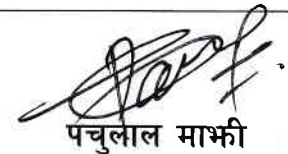 पचुलाल माझी